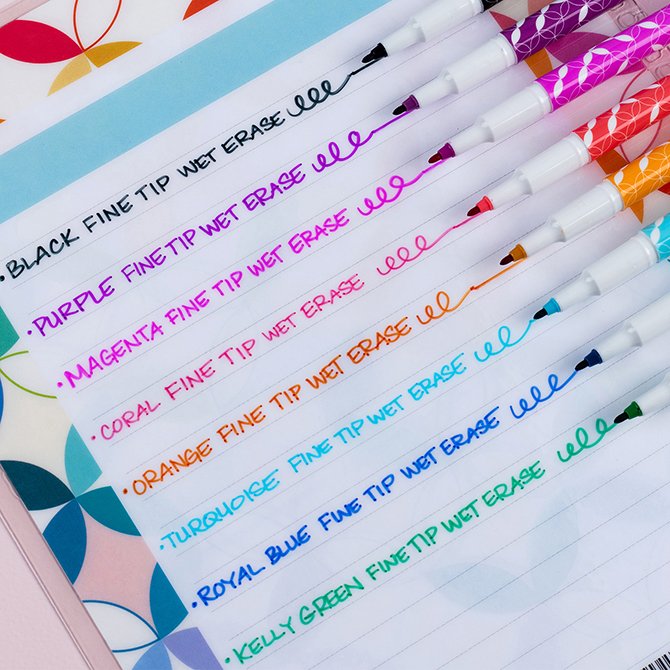 • BLACK FINE TIP WET ERASE
• PURPLE FINE TIP WET ERASE
• MAGENTA FINE TIP WET ERASE
• CORAL FINE TIP WET ERASE
• ORANGE FINE TIP WET ERASE
• TURQUOISE FINE TIP WET ERASE
• ROYAL BLUE FINE TIP WET ERASE
• KELLY GREEN FINE TIP WET ERASE